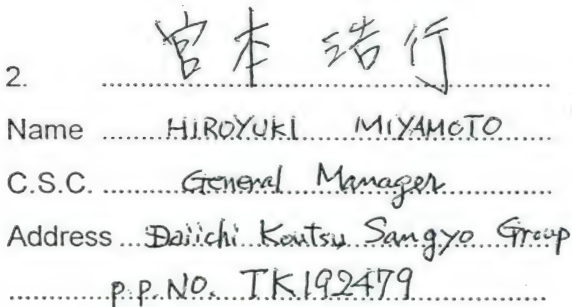 2. 宮本 浩行
Name HIROYUKI MIYAMOTO
C.S.C. General Manager
Address Daiichi Koutsu Sangyo Group
p.p.No. TK192479